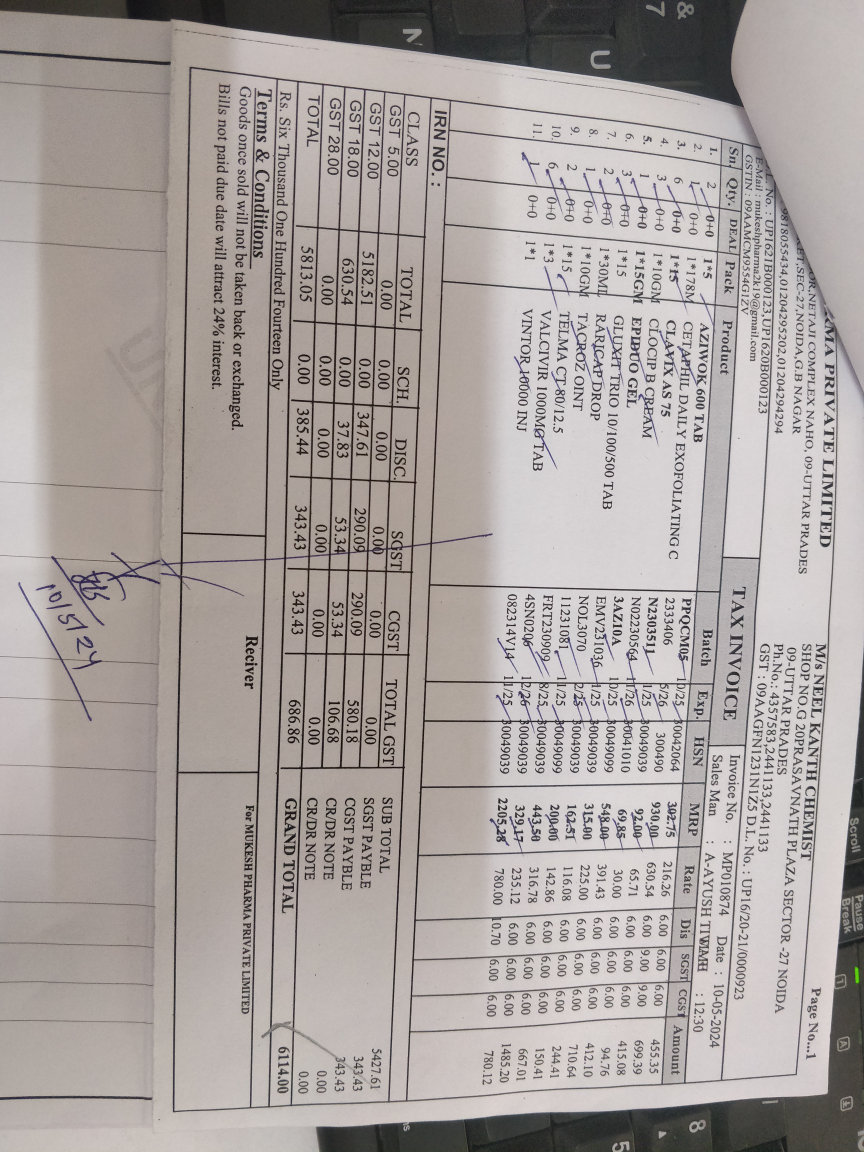 ZMA PRIVATE LIMITED
OR,NETAJI COMPLEX NAHO, 09-UTTAR PRADES
KET,SEC-27,NOIDA,G.B NAGAR
9818055434,01204295202,01204294294
L. No. : UP1621B000123,UP1620B000123
E-Mail : mukeshpharma2k19@gmail.com
GSTIN : 09AAMCM9554G1ZV
Page No...1
M/s NEEL KANTH CHEMIST
SHOP NO.G 20PRASAVNATH PLAZA SECTOR -27 NOIDA
09-UTTAR PRADES
Ph.No.: 4357583,2441133,2441133
GST : 09AAGFN1231N1Z5 D.L. No. : UP16/20-21/0000923
TAX INVOICE
Invoice No. : MP010874 Date : 10-05-2024
Sales Man : A-AYUSH TIWARI : 12:30
Sn Qty. DEAL Pack Product Batch Exp. HSN MRP Rate Dis SGST CGST Amount
1. 2 0+0 1*5 AZIWOK 600 TAB PPQCM05 10/25 30042064 302.75 216.26 6.00 6.00 6.00 455.35
2. 1 0+0 1*178M CETAPHIL DAILY EXOFOLIATING C 2333406 5/26 300490 930.00 630.54 6.00 9.00 9.00 699.39
3. 6 0+0 1*15 CLAVIX AS 75 N2303511 1/25 30049039 92.00 65.71 6.00 6.00 6.00 415.08
4. 3 0+0 1*10GM CLOCIP B CREAM N02230564 11/26 30041010 69.85 30.00 6.00 6.00 6.00 94.76
5. 1 0+0 1*15GM EPIDUO GEL 3AZ10A 10/25 30049099 548.00 391.43 6.00 6.00 6.00 412.10
6. 3 0+0 1*15 GLUXIT TRIO 10/100/500 TAB EMV231036 1/25 30049039 315.00 225.00 6.00 6.00 6.00 710.64
7. 2 0+0 1*30ML RARICAP DROP NOL3070 2/25 30049039 162.51 116.08 6.00 6.00 6.00 244.41
8. 1 0+0 1*10GM TACROZ OINT 11231081 11/25 30049099 200.00 142.86 6.00 6.00 6.00 150.41
9. 2 0+0 1*15 TELMA CT 80/12.5 FRT230909 8/25 30049039 443.50 316.78 6.00 6.00 6.00 667.01
10. 6 0+0 1*3 VALCIVIR 1000MG TAB 4SN0206 12/26 30049039 329.17 235.12 6.00 6.00 6.00 1485.20
11. 1 0+0 1*1 VINTOR 10000 INJ 082314V14 11/25 30049039 2205.28 780.00 10.70 6.00 6.00 780.12
IRN NO. :
CLASS TOTAL SCH. DISC. SGST CGST TOTAL GST
GST 5.00 0.00 0.00 0.00 0.00 0.00 0.00
GST 12.00 5182.51 0.00 347.61 290.09 290.09 580.18
GST 18.00 630.54 0.00 37.83 53.34 53.34 106.68
GST 28.00 0.00 0.00 0.00 0.00 0.00 0.00
TOTAL 5813.05 0.00 385.44 343.43 343.43 686.86
SUB TOTAL 5427.61
SGST PAYBLE 343.43
CGST PAYBLE 343.43
CR/DR NOTE 0.00
CR/DR NOTE 0.00
Rs. Six Thousand One Hundred Fourteen Only
GRAND TOTAL 6114.00
Terms & Conditions
Goods once sold will not be taken back or exchanged.
Bills not paid due date will attract 24% interest.
Reciver
For MUKESH PHARMA PRIVATE LIMITED
10/5/24
&
7
U
N
Scroll
Pause
Break
1
A
8
5